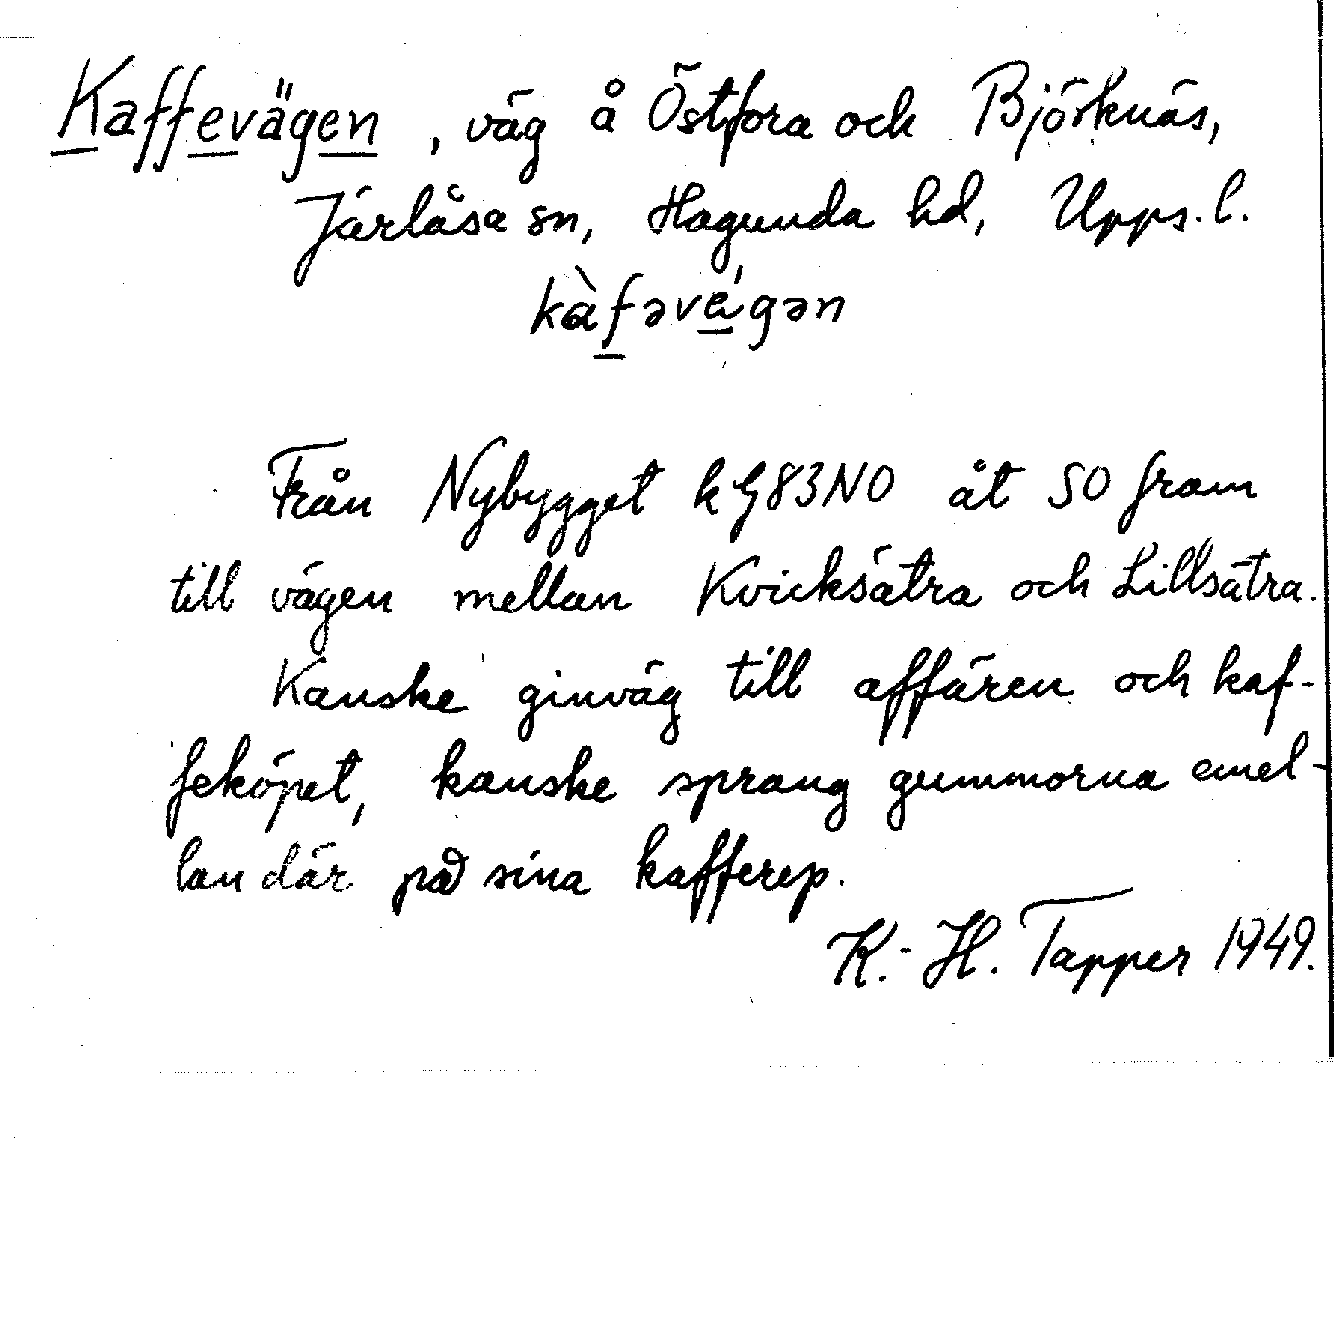 Kaffevägen, väg å Östfora och Björknäs,
Järlåsa sn, Hagunda hd, Upps. l.
kàfəvégən
Från Nybygget k G83NO åt SO fram
till vägen mellan Kvicksätra och Lillsätra.
Kanske ginväg till affären och kaf-
feköpet, kanske sprang gummorna emel-
lan där på sina kafferep.
K.-H. Tapper 1949.